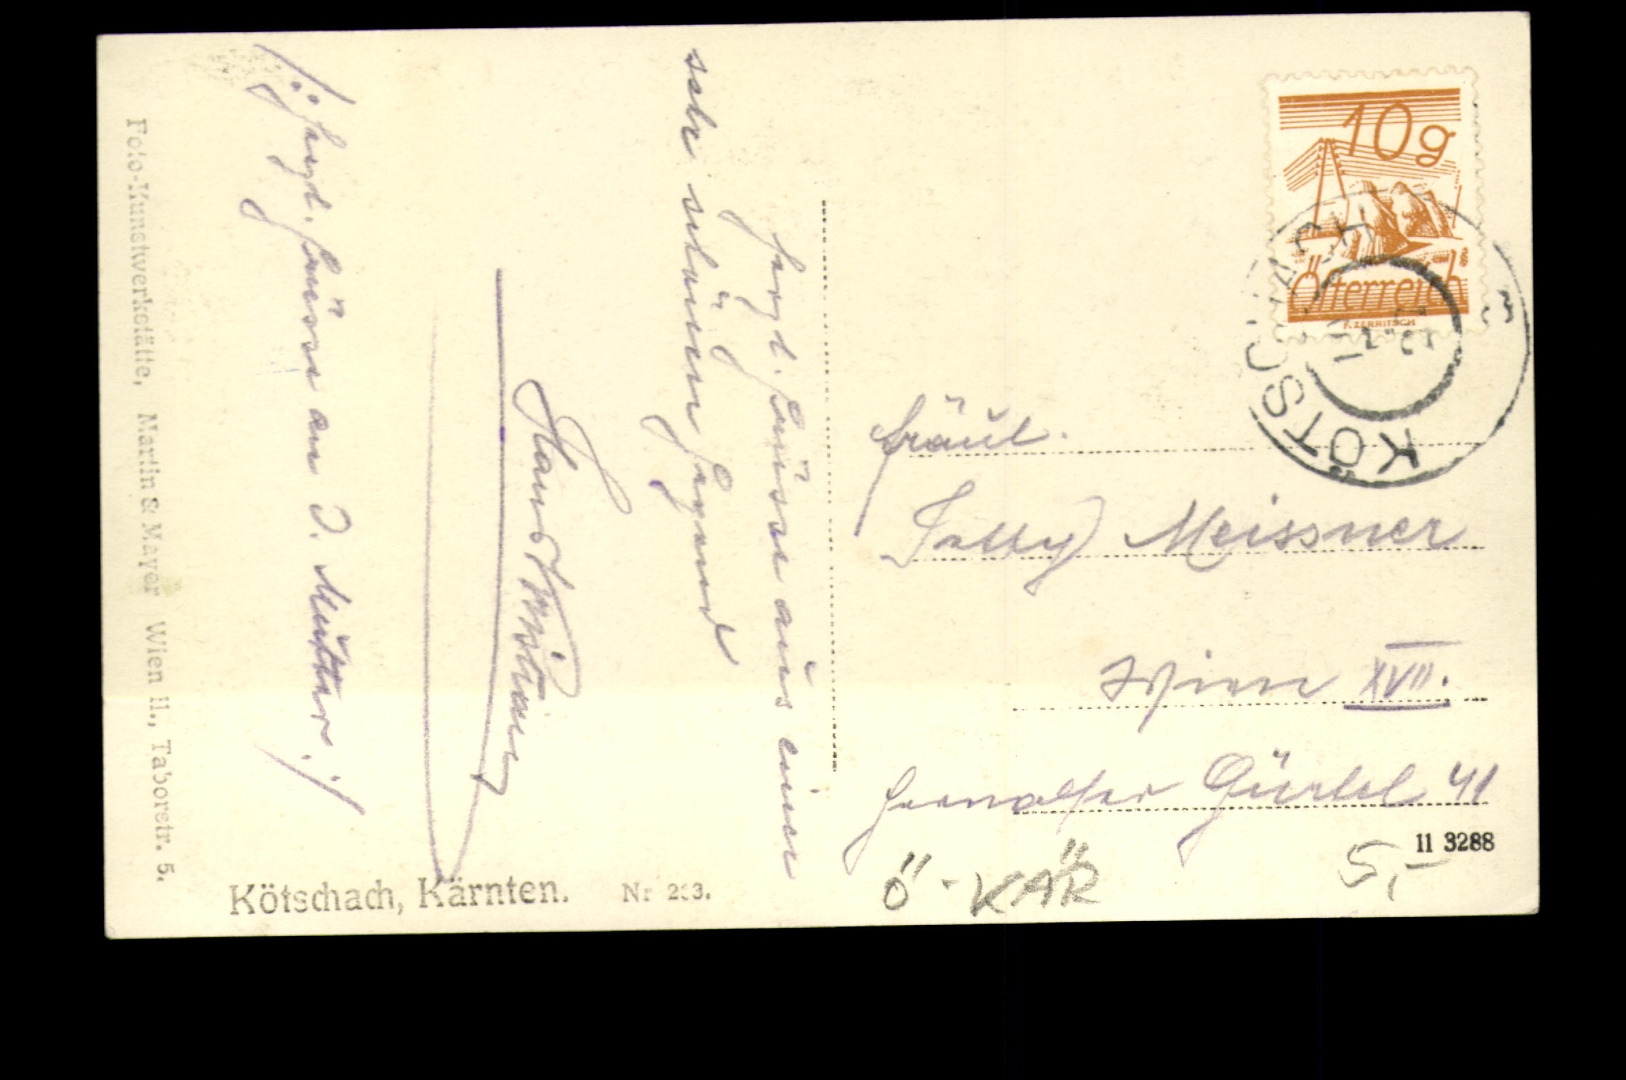 herzl. Grüsse aus einer
sehr schönen Gegend
Hans
/: herzl. Grüsse an D. Mutter :/
Foto-Kunstwerkstätte, Martin & Mayer Wien II., Taborstr. 5.
Kötschach, Kärnten. Nr
10g
Österreich
F. ZERRITSCH
KÖTSCHACH
Fräul.
Meissner
Wien XVII.
Hernalser Gürtel 41
11 3288
Ö-KÄR
5,-